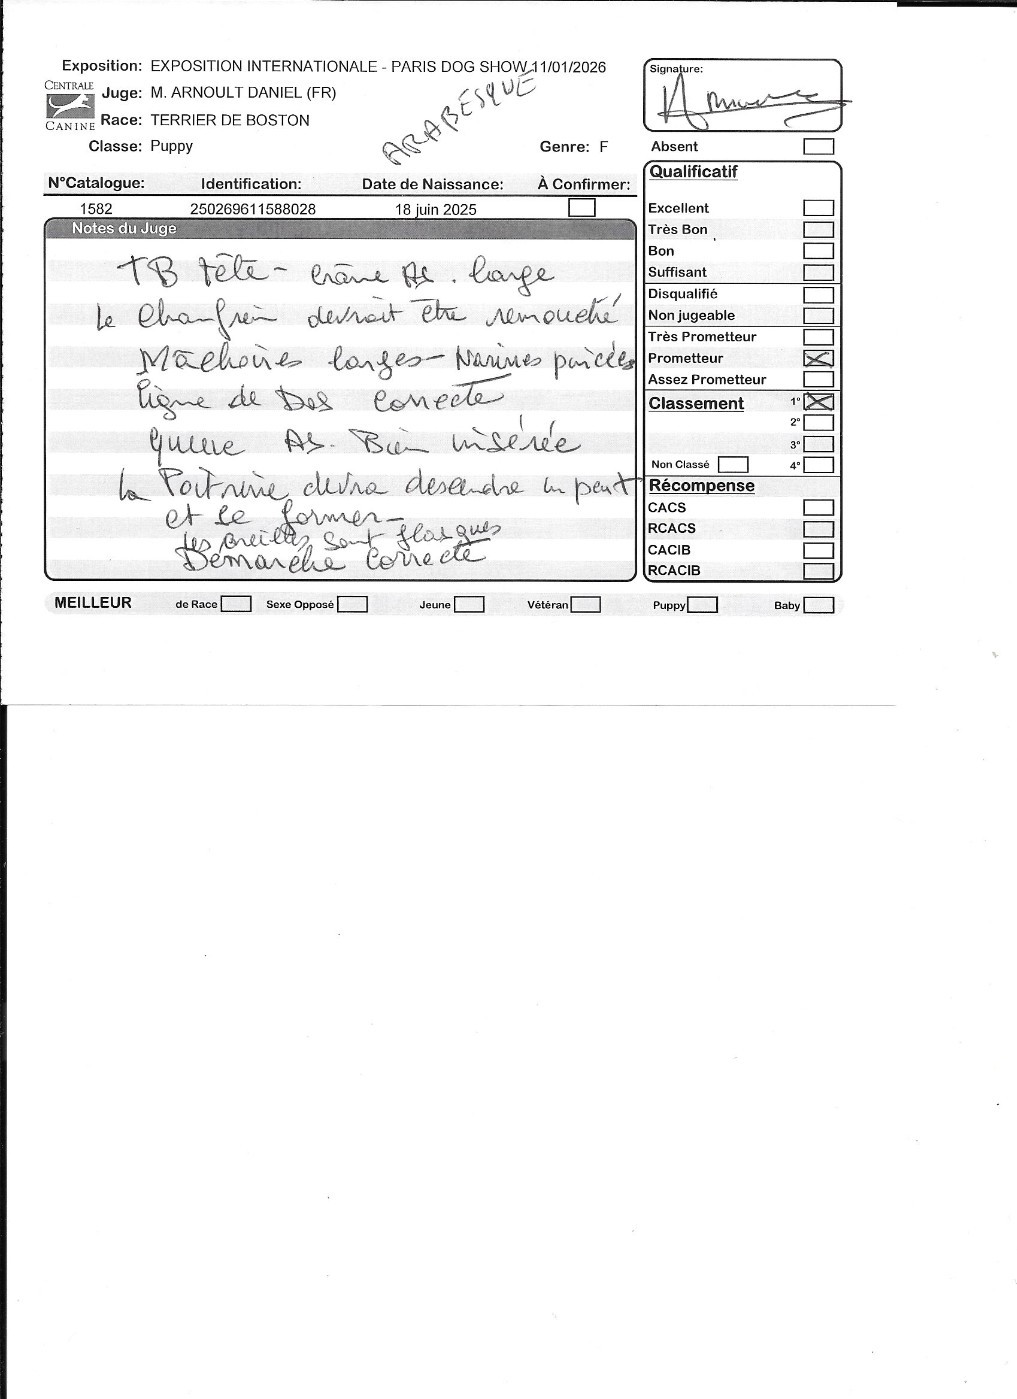 Exposition: EXPOSITION INTERNATIONALE - PARIS DOG SHOW 11/01/2026
CENTRALE CANINE
Juge: M. ARNOULT DANIEL (FR)
Race: TERRIER DE BOSTON
ARABÉSQUE
Classe: Puppy
Genre: F
Signature:
Absent
N°Catalogue: Identification: Date de Naissance: À Confirmer:
1582 250269611588028 18 juin 2025
Notes du Juge
TB tête - Crâne As. large
Le Chanfrein devrait être remouché
Mâchoires larges - Narines
ligne de Dos Correcte
queue As. Bien insérée
la Poitrine devra descendre un peut
et se former -
les oreilles sont flasques
Démarche Correcte
Qualificatif
Excellent
Très Bon
Bon
Suffisant
Disqualifié
Non jugeable
Très Prometteur
Prometteur X
Assez Prometteur
Classement 1° X
2°
3°
Non Classé 4°
Récompense
CACS
RCACS
CACIB
RCACIB
MEILLEUR de Race Sexe Opposé Jeune Vétéran Puppy Baby